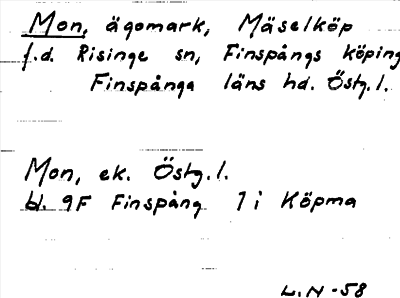 Mon, ägomark, Mäselköp
f.d. Risinge sn, Finspångs köping
Finspånga läns hd. Östg.l.
Mon, ek. Östg.l.
bl. 9F Finspång 1 i Köpma
L.N -58